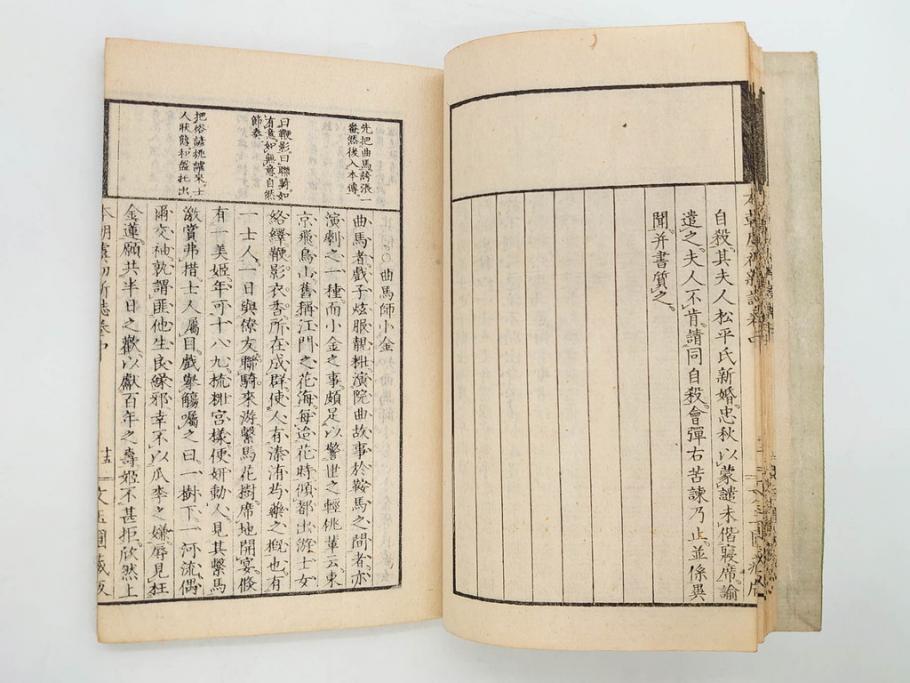 自殺其夫人松平氏新婚忠秋以蒙譴未偕寢席諭
遣之夫人不肯請同自殺會彈右苦諫乃止並係異
聞并書質之。
先把曲馬誇張一
番然後入本傳
曰鞭影曰聯騎如
有意如無意自然
節奏
把俗諺挑謔來士
人狀態和盤托出
○曲馬師小金
曲馬者戲子炫服靚粧演院曲故事於鞍馬之間者亦
演劇之一種而小金之事頗足以警世之輕佻輩云東
京飛鳥山舊稱江門之花海每迨花時傾都出游士女
絡繹鞭影衣香所在成群使人有溱洧芍藥之概也有
一士人一日與僚友聯騎來游繫馬花樹席地開宴
有一美姬年可十八九梳粧宮樣便妍動人見其繫馬
激賞弗措士人屬目戲擧觴囑之曰一樹下一河流偶
爾交袖孰謂匪他生良緣邪幸不以瓜李之嫌辱見枉
金蓮願共半日之歡以獻百年之壽姬不甚拒欣然上
本朝虞初新誌卷中 十五 文玉圃藏版